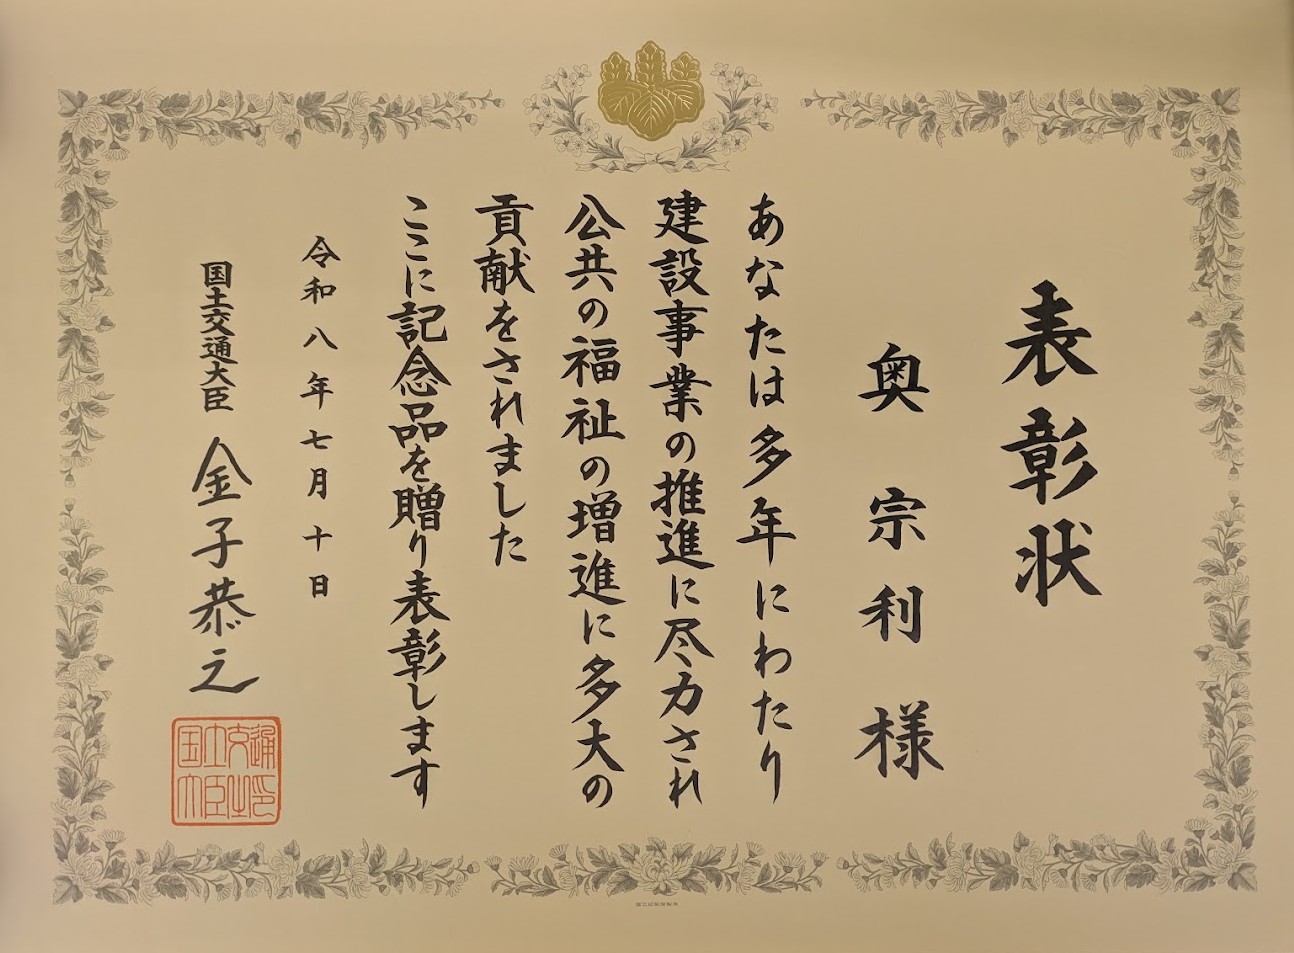 表彰状
奥宗利様
あなたは多年にわたり
建設事業の推進に尽力され
公共の福祉の増進に多大の
貢献をされました
ここに記念品を贈り表彰します
令和八年七月十日
国土交通大臣 金子恭之